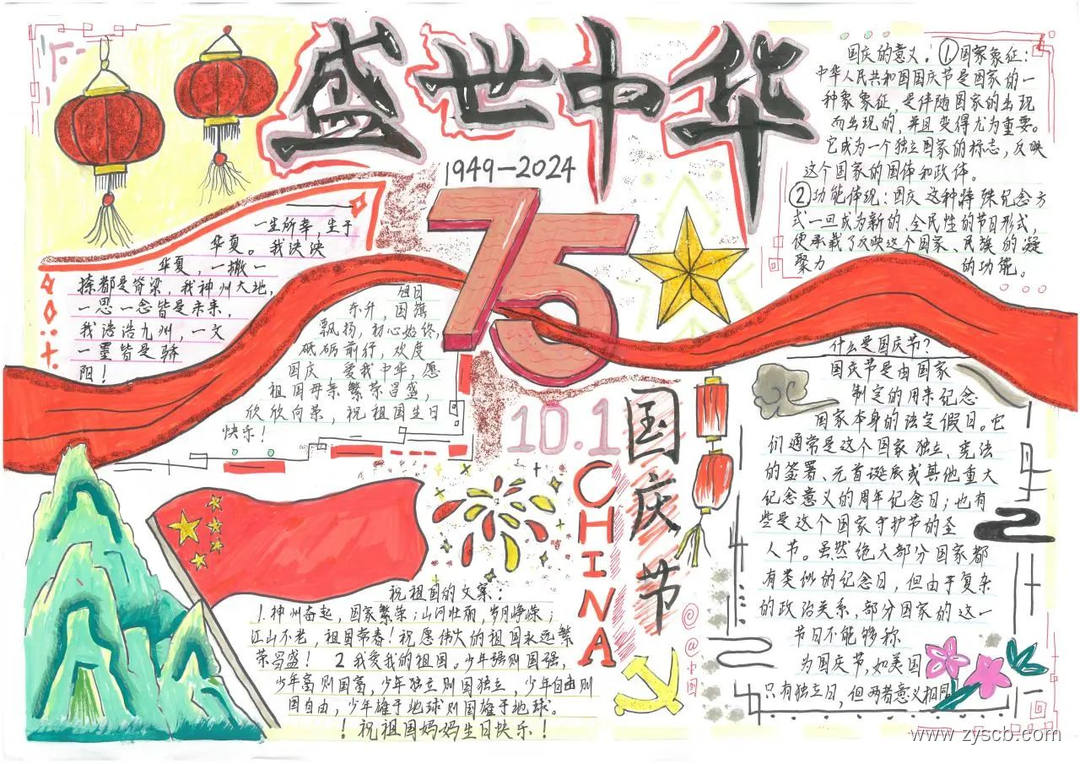 盛世中华
1949—2024
75
10.1
国庆节
CHINA
一生所幸，生于
华夏。我泱泱
华夏，一撇一
捺都是脊梁，我神州大地，
一思一念皆是未来，
我浩浩九州，一文
一墨皆是骄
阳！
旭日
东升，国旗
飘扬，初心始终，
砥砺前行，欢度
国庆，爱我中华，愿
祖国母亲繁荣昌盛，
欣欣向荣，祝祖国生日
快乐！
国庆的意义。①国家象征：
中华人民共和国国庆节是国家的一
种象象征，是伴随国家的出现
而出现的，并且变得尤为重要。
它成为一个独立国家的标志，反映
这个国家的国体和政体。
②功能体现：国庆这种特殊纪念方
式一旦成为新的、全民性的节日形式，
便承载了反映这个国家、民族的凝
聚力 的功能。
什么是国庆节？
国庆节是由国家
制定的用来纪念
国家本身的法定假日。它
们通常是这个国家独立、宪法
的签署、元首诞辰或其他重大
纪念意义的周年纪念日；也有
些是这个国家守护节的圣
人节。虽然绝大部分国家都
有类似的纪念日，但由于复杂
的政治关系，部分国家的这一
节日不能够称
为国庆节，如美国
只有独立日，但两者意义相同
祝祖国的文案：
1.神州奋起，国家繁荣；山河壮丽，岁月峥嵘；
江山不老，祖国常春！祝愿伟大的祖国永远繁
荣昌盛！ 2 我爱我的祖国。少年强则国强，
少年富则国富，少年独立则国独立，少年自由则
国自由，少年雄于地球则国雄于地球。
！祝祖国妈妈生日快乐！
www.zyscb.com